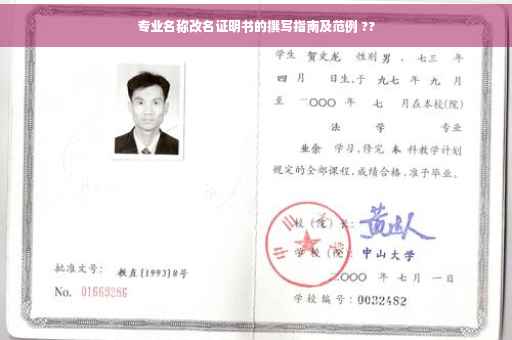 专业名称改名证明书的撰写指南及范例 ??
学生 贺文龙 性别 男 、七三 年
四 月 日生,于 九七 年 九 月
至 二〇〇〇 年 七 月在本校(院)
法 学 专业
业余 学习,修完 本 科教学计划
规定的全部课程,成绩合格,准予毕业。
校 (院) 长:
学 校 (院): 中山大学
二〇〇〇 年 七 月 一 日
学校编号: 0032482
批准文号: 教直[1993]8号
No. 01669286